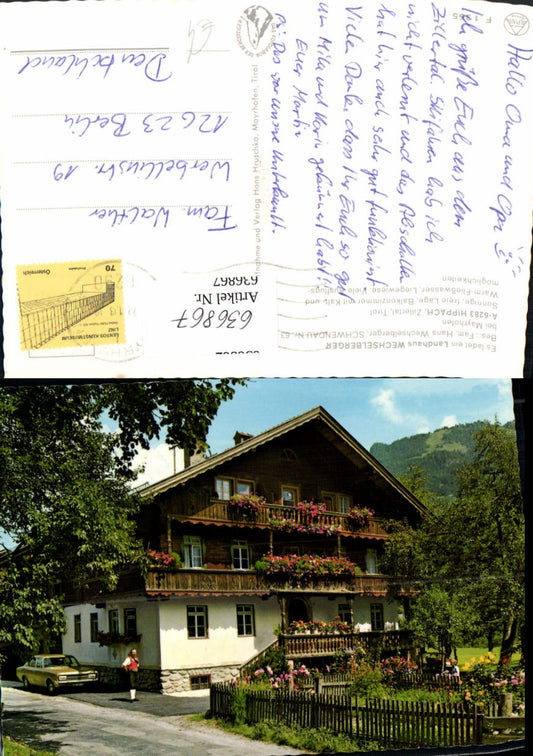 Hallo Oma und Opa
Ich grüße Euch aus dem
Zillertal. Skifahren hab ich
nicht verlernt und das Abschalten
hat hier auch sehr gut funktioniert.
Viele Dank, dass Ihr Euch so gut
um Mila und Karin gekümmert habt!
Euer Martin
PS: Das war unsere Unterkunft.
Fam. Walther
Werbellinstr. 19
12623 Berlin
Deutschland
F 1365
Aufnahme und Verlag Hans Hruschka, Mayrhofen, Tirol
Es ladet ein Landhaus WECHSELBERGER
Bes.: Fam. Hans Wechselberger, SCHWENDAU Nr. 63
bei Mayrhofen
A-6283 HIPPACH, Zillertal Tirol
Sonnige, freie Lage, Balkonzimmer mit Kalt- und
Warm-Fließwasser, Liegewiese, viele Ausflugs-
möglichkeiten
636867
Artikel Nr.
636867
70
Österreich
LENTOS KUNSTMUSEUM
LINZ